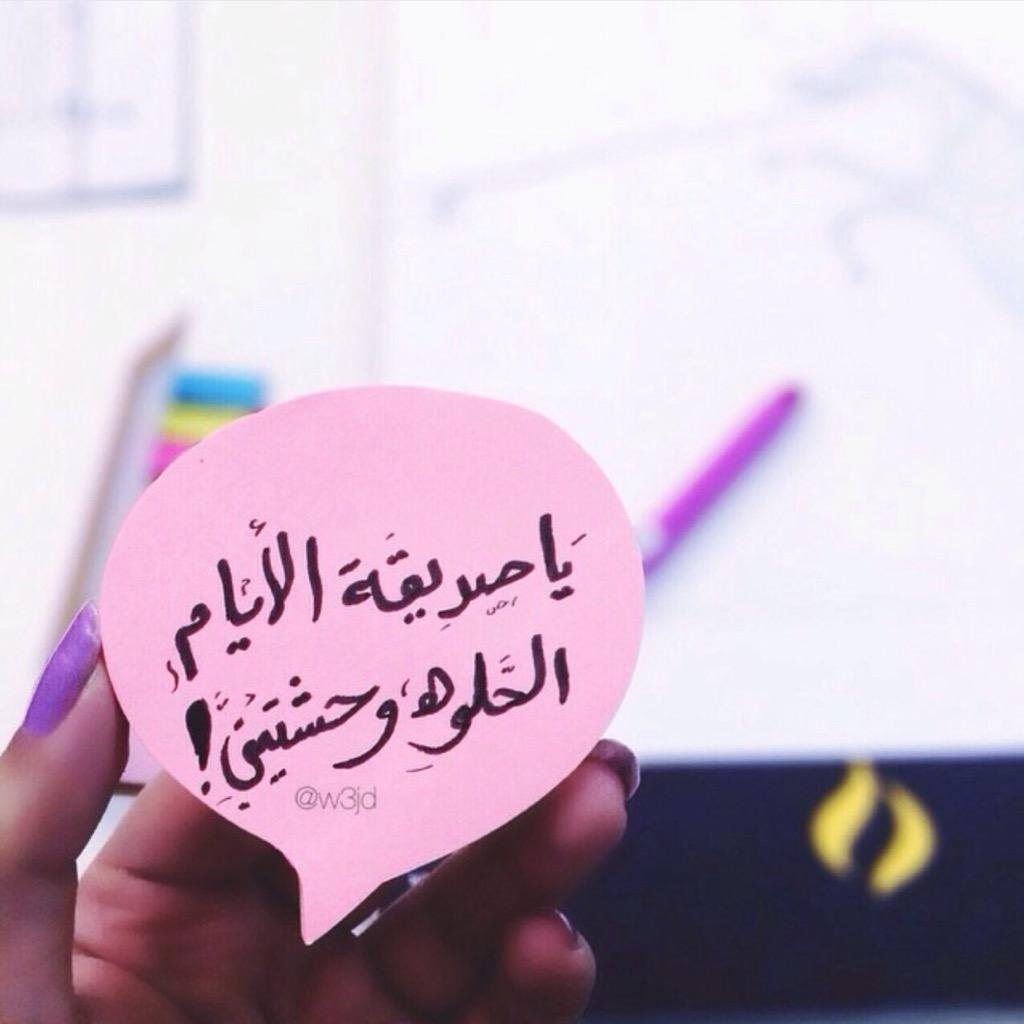 يَا صِدِيقَة الأيَام
الحَلوه وحشتيني!
@w3jd